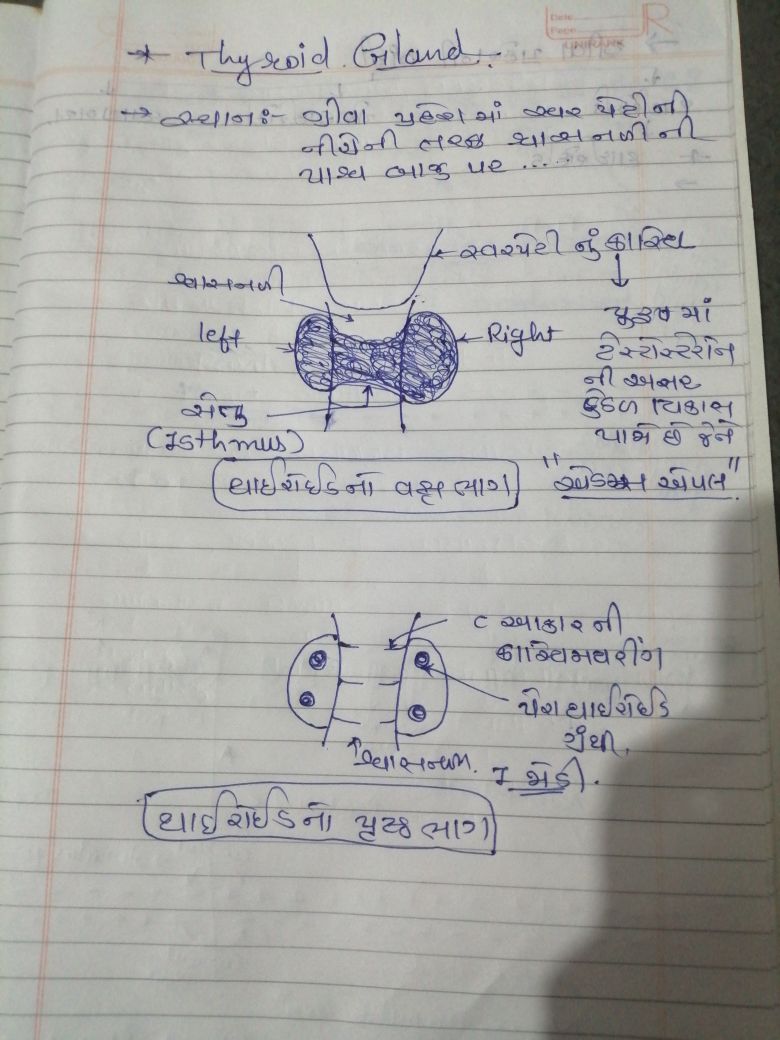 Date
Page
UNIRANK
R
* Thyroid Gland.
→ સ્થાનઃ- ગ્રીવા પ્રદેશ માં સ્વર પેટી ની
નીચેની તરફ શ્વાસનળી ની
પાશ્વ બાજુ પર ....
સ્વરપેટી નું કાસ્થિ
શ્વાસનળી
left
Right
પુરુષ માં
ટેસ્ટોસ્ટેરોન
ની અસર
કુંડળ વિકાસ
પામે છે જેને
"એડમ્સ એપલ"
સેતુ
(Isthmus)
થાઈરોઈડ નો વક્ષ ભાગ
C આકાર ની
કાસ્થિમય રીંગ
પેરાથાઈરોઈડ
ગ્રંથી.
શ્વાસનળી.
થાઈરોઈડ નો પૃષ્ઠ ભાગ